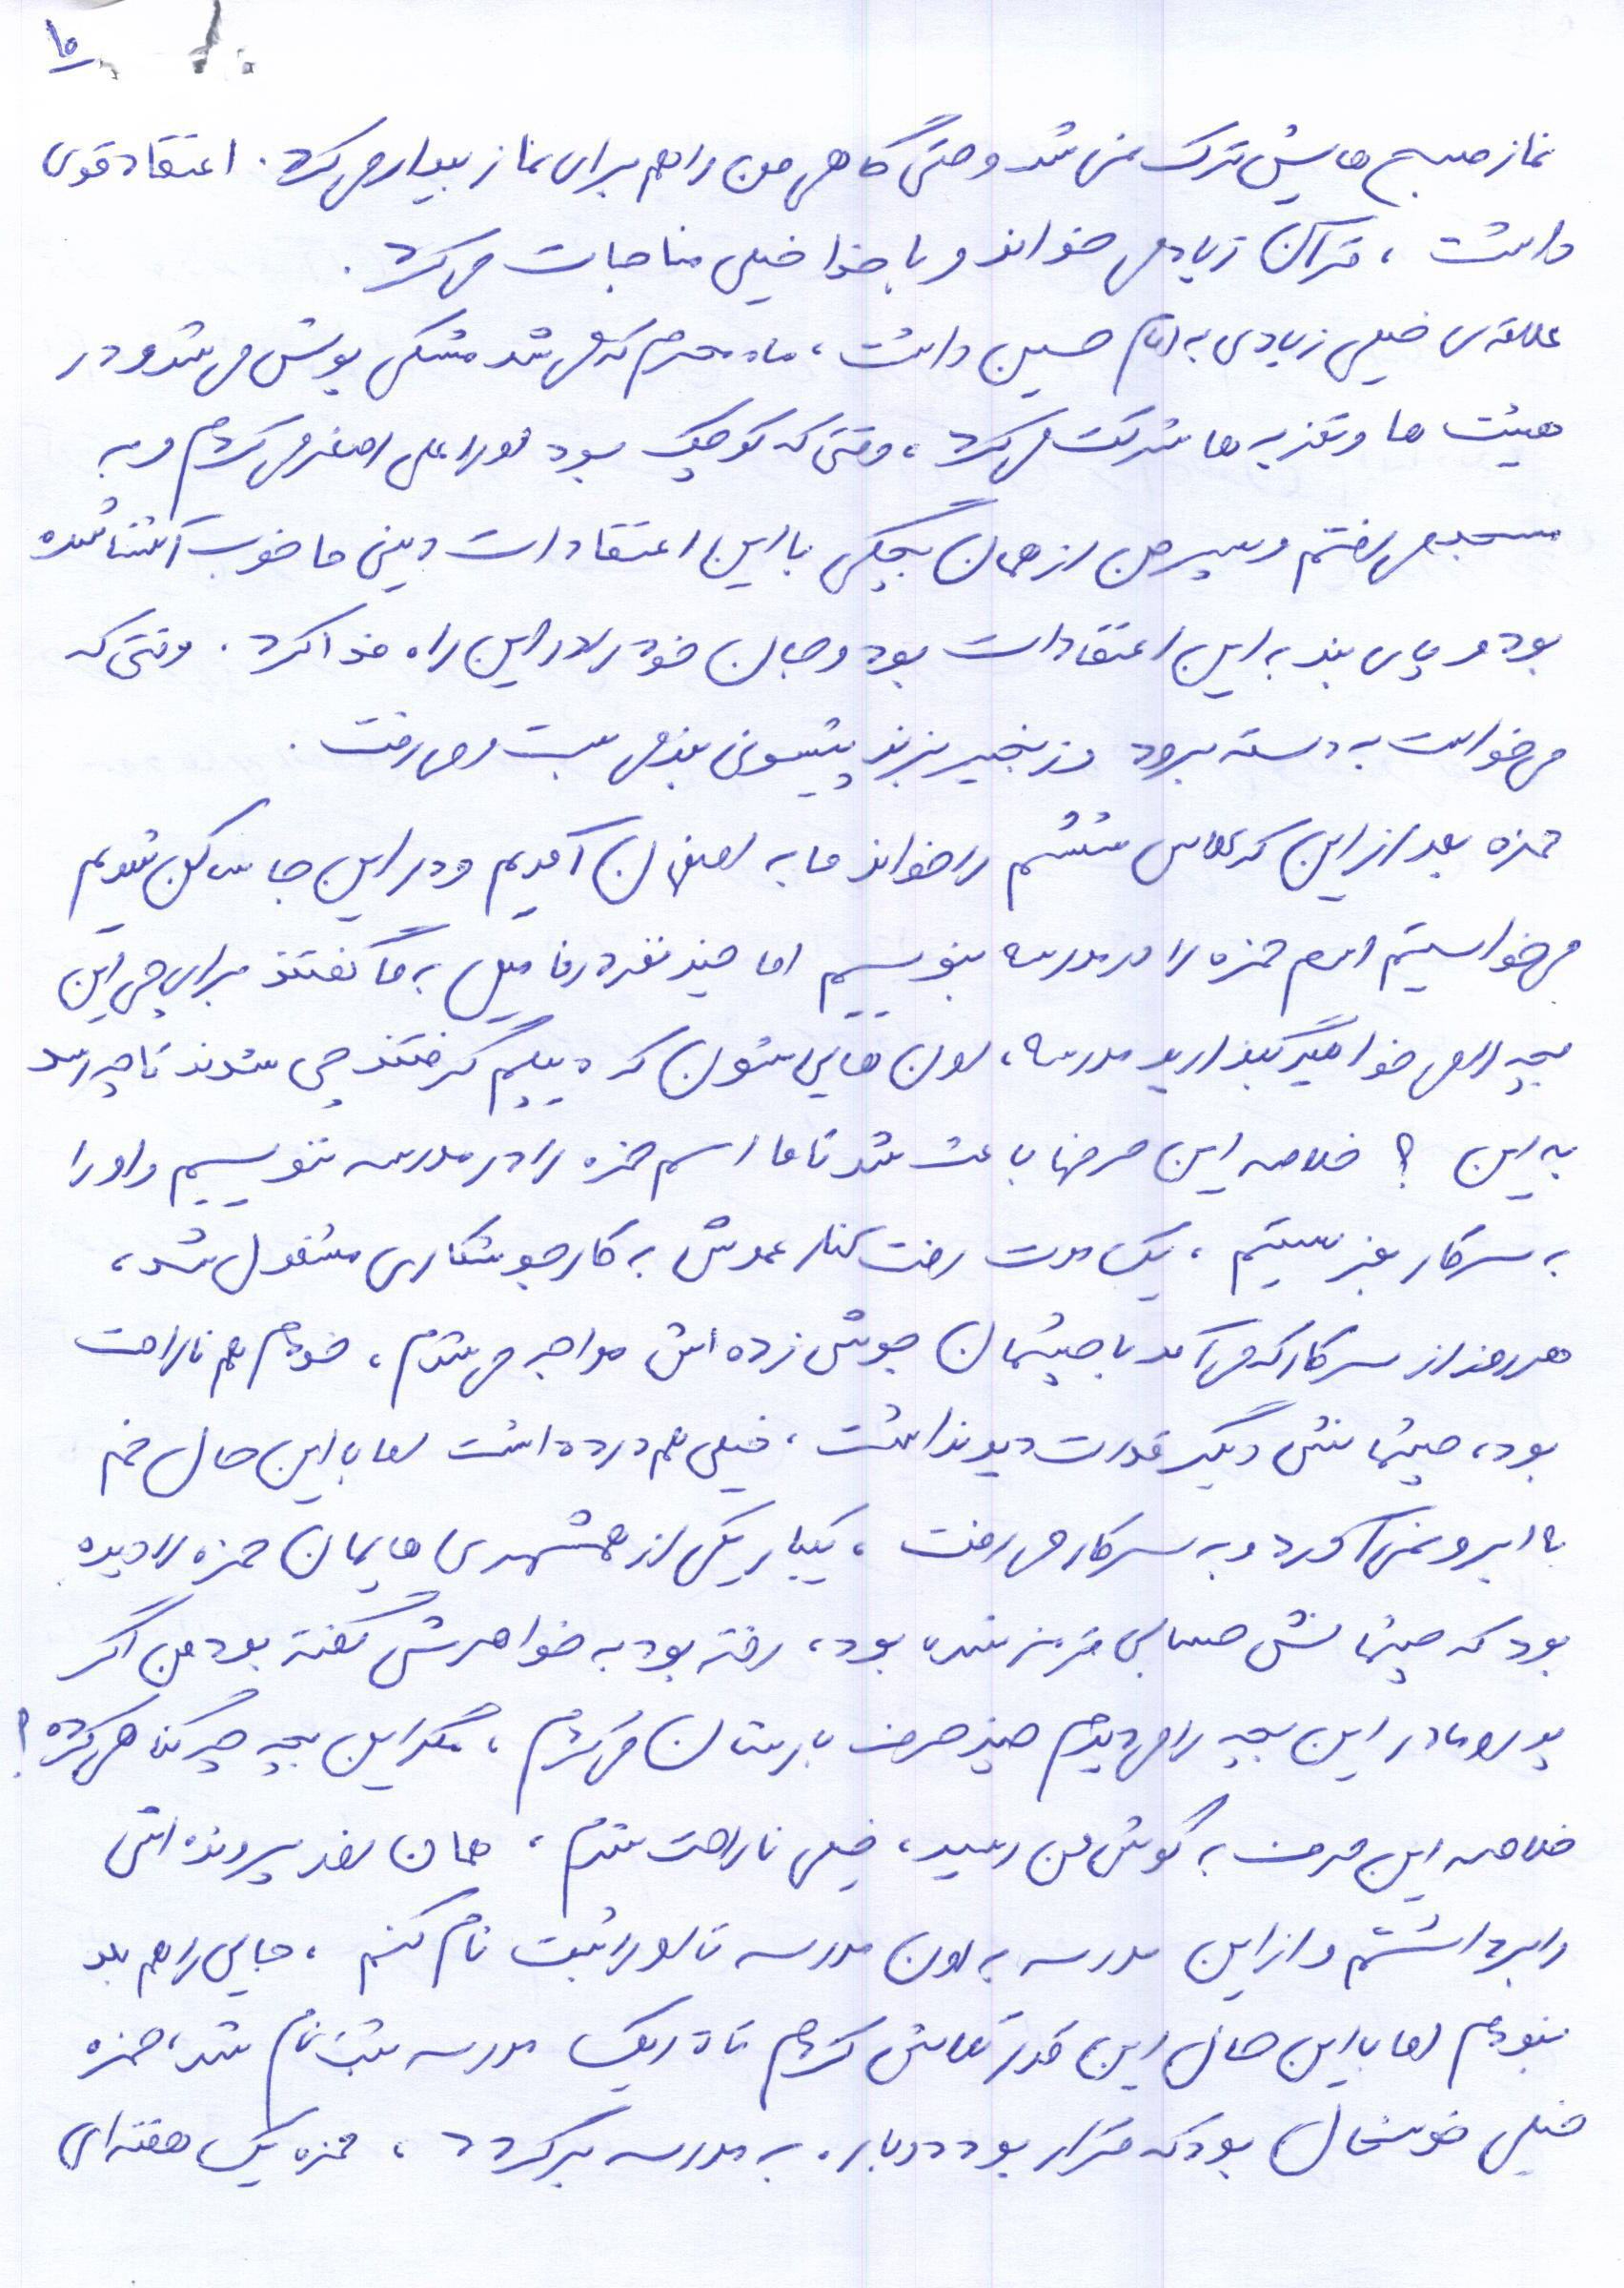 ۱۰
نماز صبح هایش ترک نمی شد و حتی گاهی من را هم برای نماز بیدار می کرد. اعتقاد قوی
داشت ، قرآن زیاد می خواند و با خدا خیلی مناجات می کرد .
علاقه ی خیلی زیادی به امام حسین داشت ، ماه محرم که می شد مشکی پوش می شد و در
هیئت ها و تعزیه ها شرکت می کرد ، وقتی که کوچک بود او را علی اصغر می کردم و به
مسجد می رفتم و پسر من از همان بچگی با این اعتقادات دینی ما خوب آشنا شده
بود و پای بند به این اعتقادات بود و جان خود را در این راه فدا کرد . وقتی که
می خواست به دسته برود و زنجیر بزند پیشونی بند می بست و می رفت .
حمزه بعد از این که کلاس ششم را خواند ما به اصفهان آمدیم و در این جا ساکن شدیم
می خواستیم اسم حمزه را در مدرسه بنویسیم اما چند نفر در فامیل به ما گفتند برای چی این
بچه را می خوا هید بگذارید مدرسه ، اون هایی شون که دیپلم گرفتند چی شدند تا چه رسد
به این ؟ خلاصه این حرفها باعث شد تا ما اسم حمزه را در مدرسه ننویسیم و او را
به سر کار بفرستیم ، یک مدت رفت کنار عموش به کار جوشکاری مشغول شد ،
هر روز از سر کار که می آمد با چشمان جوش زده اش مواجه می شدم ، خودم هم ناراحت
بود ، چشمانش دیگر قدرت دید نداشت ، خیلی هم درد داشت اما با این حال خم
به ابرو نمی آورد و به سر کار می رفت ، یکبار یکی از همشهری هایمان حمزه را دیده
بود که چشمانش حسابی قرمز شده بود ، رفته بود به خواهرش گفته بود من اگر
پدر و مادر این بچه را می دیدم چند حرف بارشان می کردم ، مگر این بچه چه گناهی کرده ؟!
خلاصه این حرف به گوش من رسید ، خیلی ناراحت شدم ، همان روز پرونده اش
را برداشتم و از این مدرسه به اون مدرسه تا او را ثبت نام کنم ، جایی را هم بلد
نبودم اما با این حال این قدر تلاش کردم تا در یک مدرسه ثبت نام شد ، حمزه
خیلی خوشحال بود که قرار بود دوباره به مدرسه برگردد ، حمزه یک هفته ای